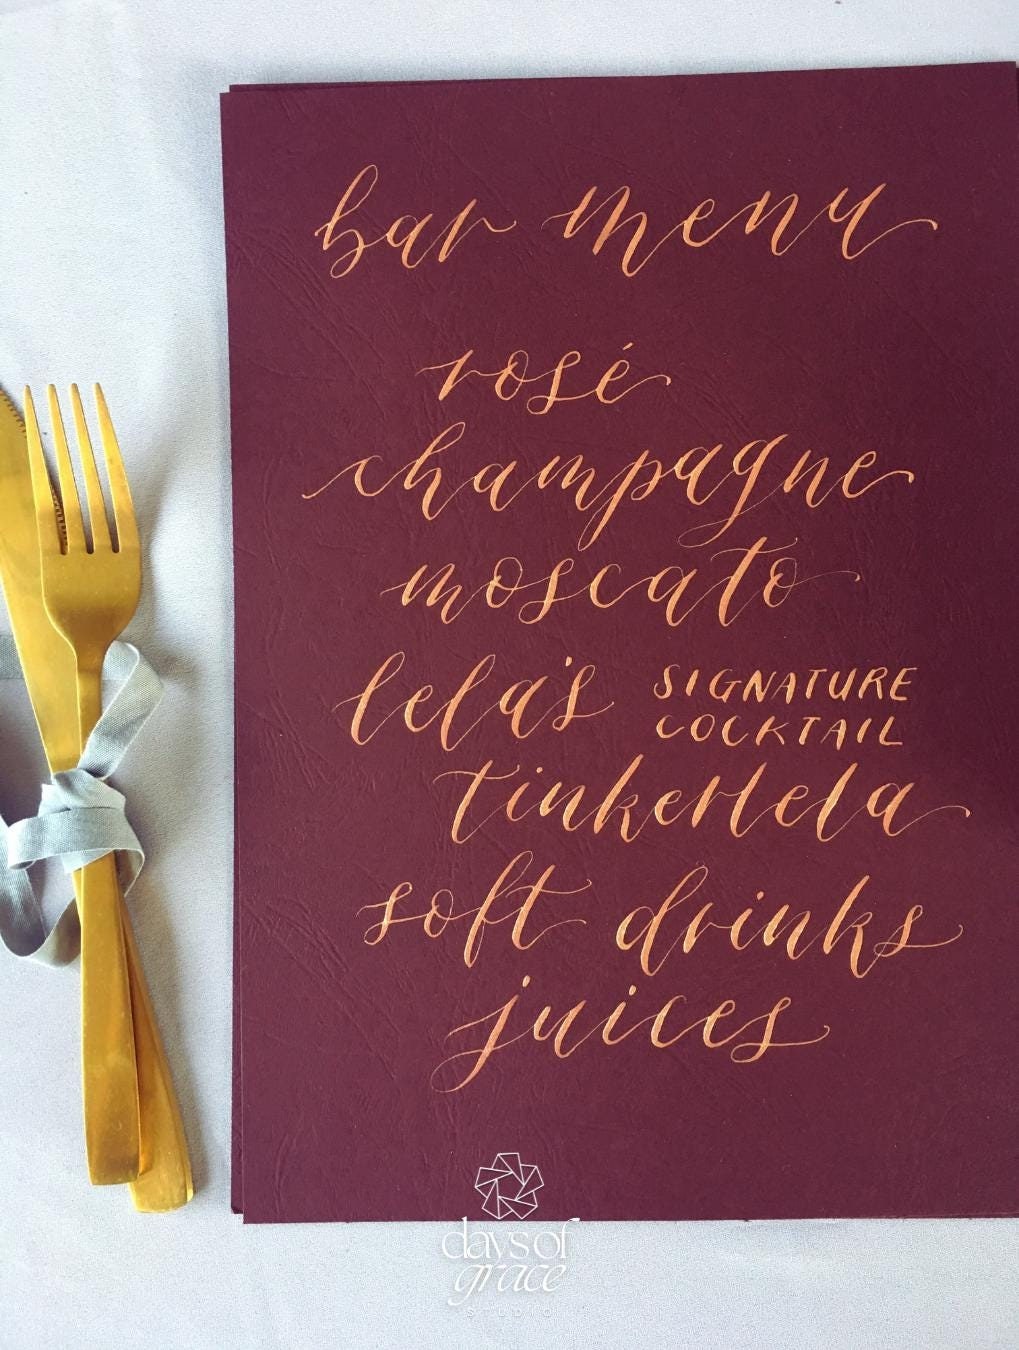 bar menu
rosé
champagne
moscato
lela's SIGNATURE COCKTAIL
tinkerlela
soft drinks
juices
days of
grace
STUDIO